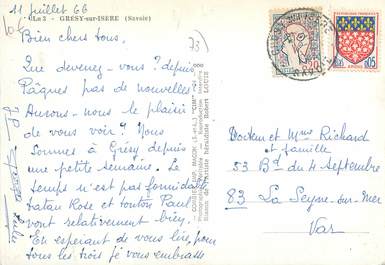 11 juillet 66
La 3 - GRÉSY-sur-ISERE (Savoie)
73)
Bien chers tous,
Que devenez-vous ? depuis
Pâques pas de nouvelles
Aurons-nous le plaisir
de vous voir ? Nous
sommes à Grésy depuis
une petite semaine. Le
temps n'est pas formidable
tatan Rose et tonton Paul
vont relativement bien.
En espérant de vous lire, pour
tous les trois je vous embrasse
COMBIER IMP. MACON
Robert LOUIS
Docteur et Mme Richard
et famille
53 Bd du 4 Septembre
83 La Seyne-sur-Mer
Var
0,20
0,05